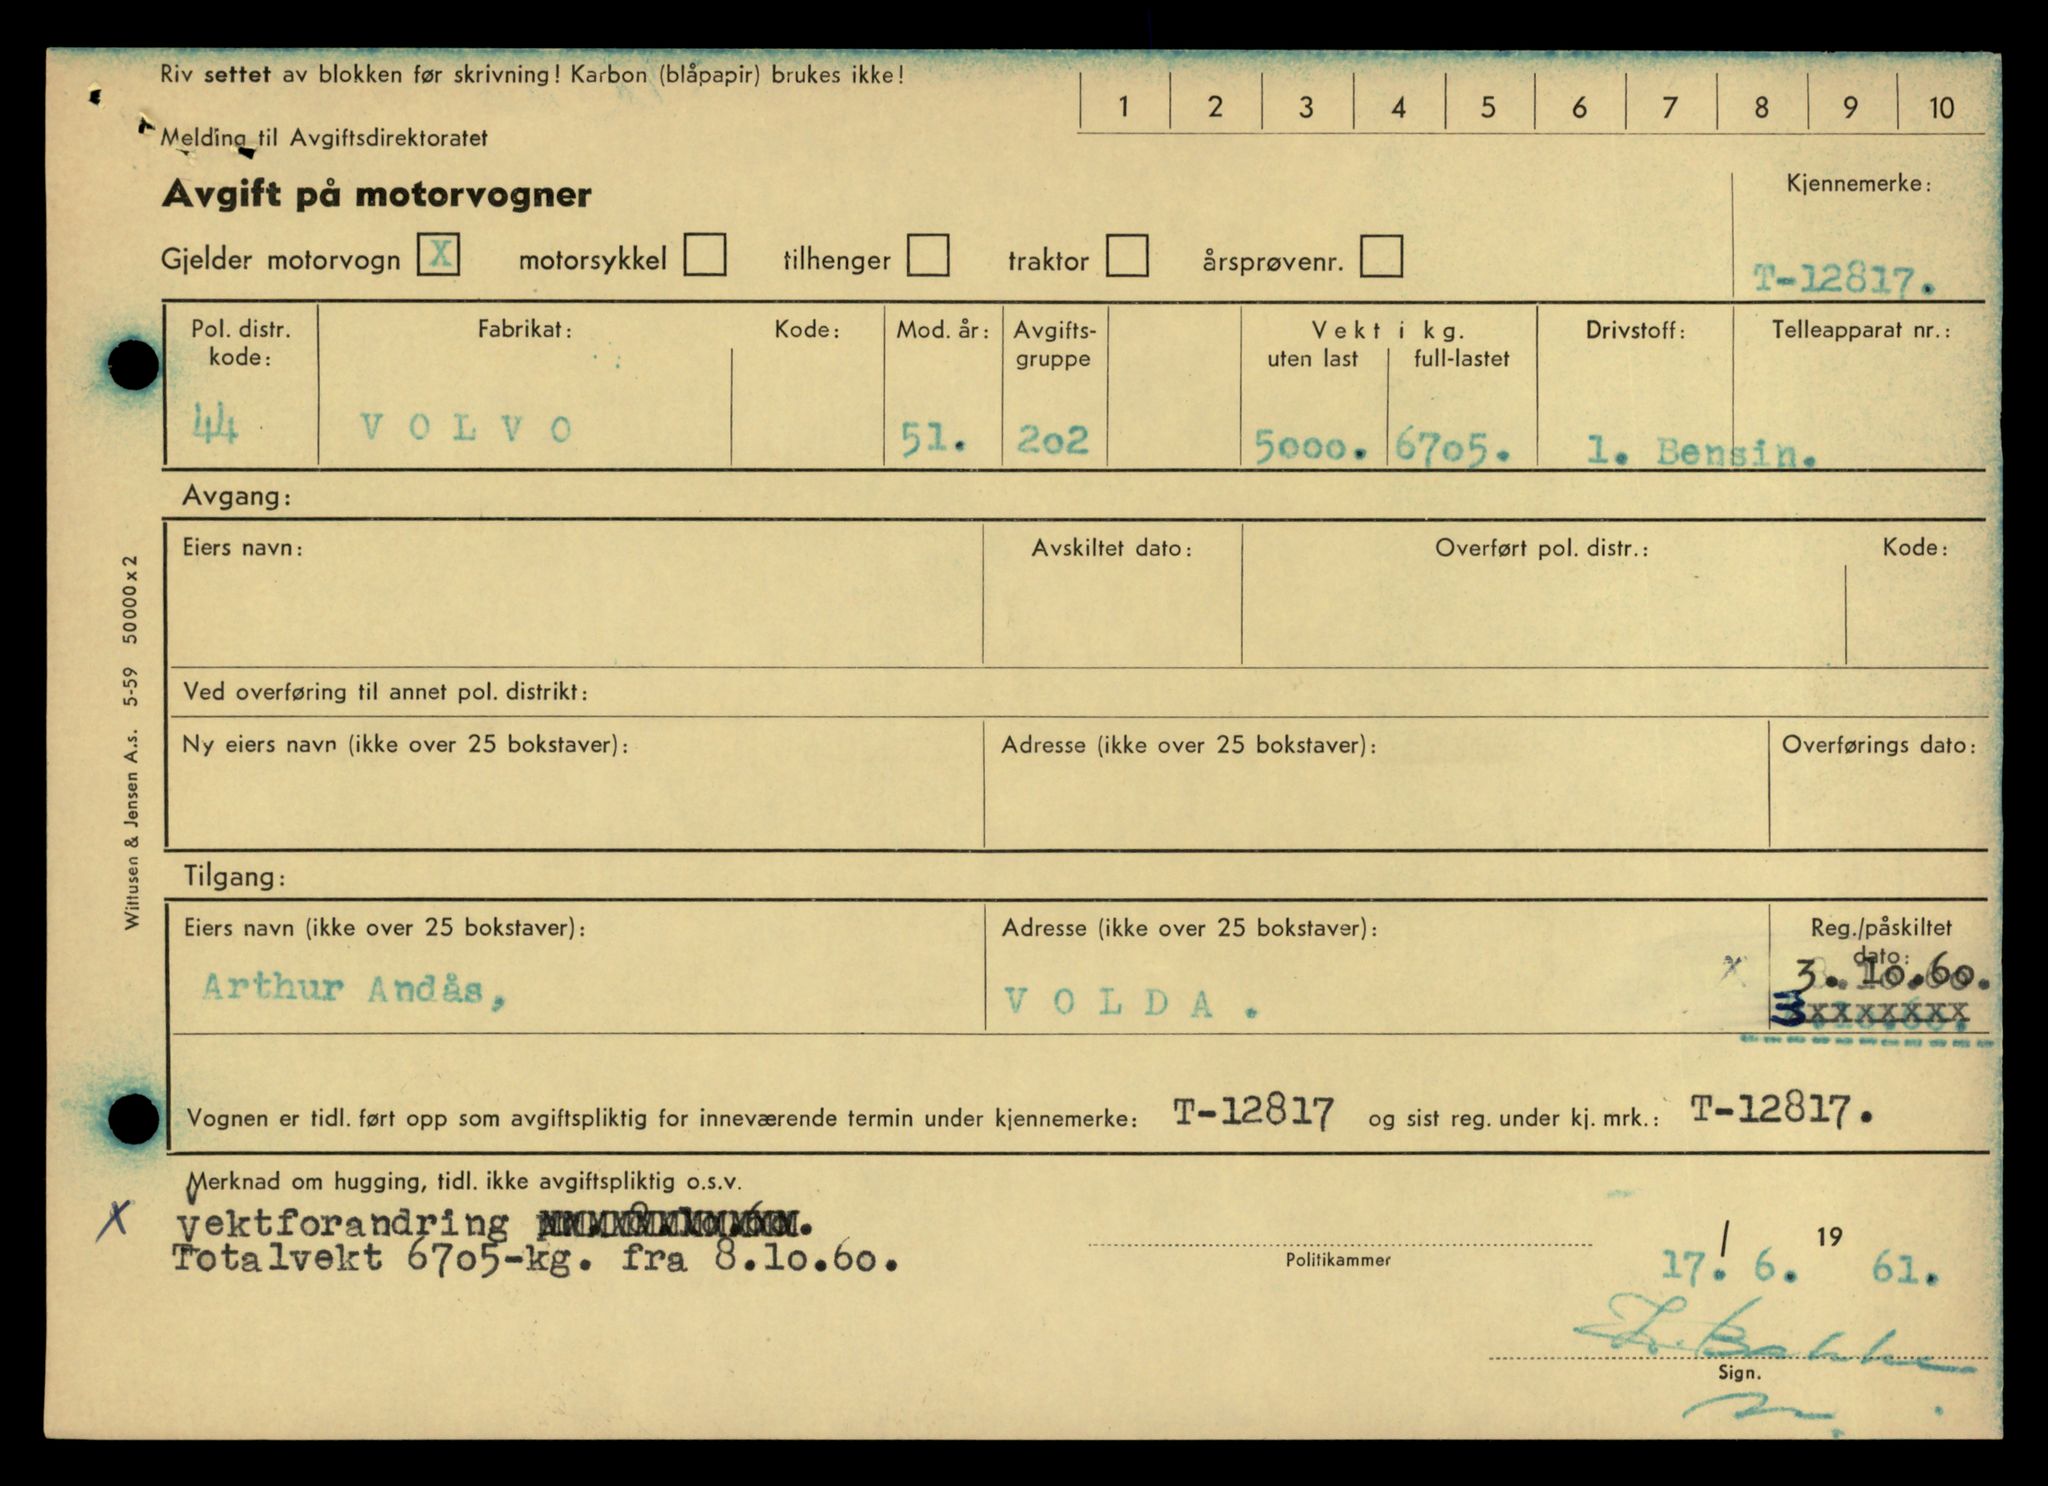 Riv settet av blokken før skrivning! Karbon (blåpapir) brukes ikke!
1 2 3 4 5 6 7 8 9 10
Melding til Avgiftsdirektoratet
Avgift på motorvogner
Kjennemerke:
T-12817.
Gjelder motorvogn X motorsykkel tilhenger traktor årsprøvenr.
Pol. distr. kode:
Fabrikat:
Kode:
Mod. år:
Avgifts-
gruppe
Vekt i kg.
uten last
full-lastet
Drivstoff:
Telleapparat nr.:
44 VOLVO 51. 202 5000. 6705. 1. Bensin.
Avgang:
Eiers navn: Avskiltet dato: Overført pol. distr.: Kode:
Ved overføring til annet pol. distrikt:
Ny eiers navn (ikke over 25 bokstaver): Adresse (ikke over 25 bokstaver): Overførings dato:
Tilgang:
Eiers navn (ikke over 25 bokstaver): Adresse (ikke over 25 bokstaver): Reg./påskiltet
dato:
x 3.10.60.
Arthur Andås, VOLDA.
Vognen er tidl. ført opp som avgiftspliktig for inneværende termin under kjennemerke: T-12817 og sist reg. under kj. mrk.: T-12817.
Merknad om hugging, tidl. ikke avgiftspliktig o.s.v.
x vektforandring
Totalvekt 6705-kg. fra 8.10.60.
Politikammer
17./6. 19 61.
Sign.
Wittusen & Jensen A.s. 5-59 50000x2